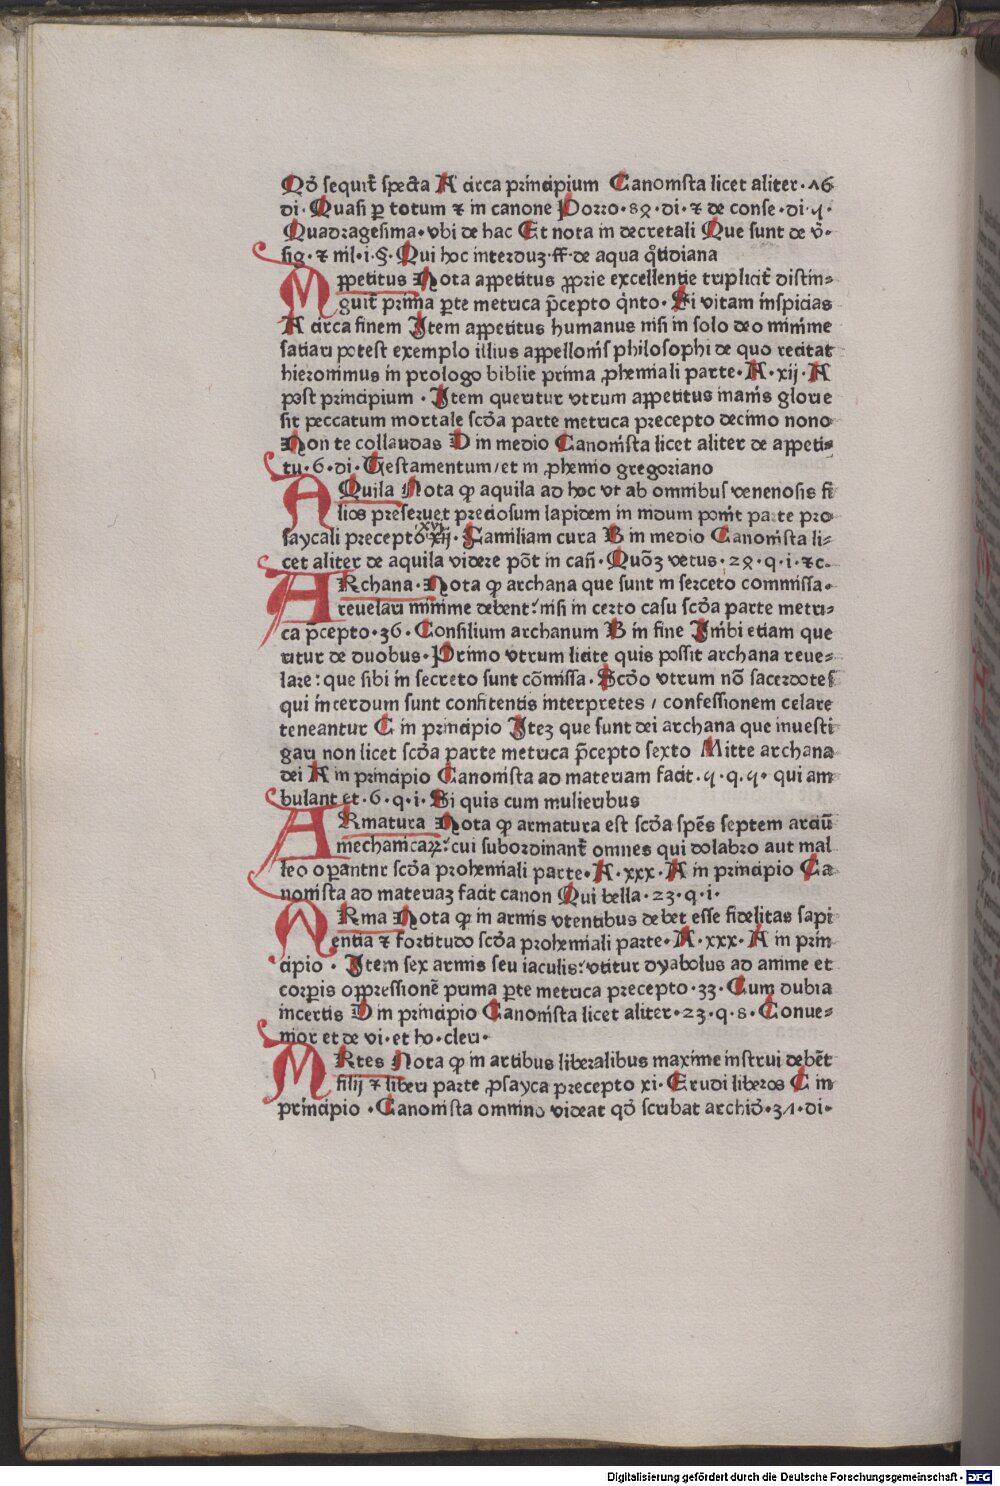 Qď sequit̃ specta A circa principium Canonista licet aliter·16
di·Quasi ꝑ totum ⁊ in canone Porro·89·di·⁊ de conse·di·4·
Quadragesima·vbi de hac Et nota in decretali Que sunt de v̄·
sig·⁊ nil·i·§·Qui hoc interduꝫ·ff·de aqua q̊tidiana
APpetitus Nota appetitus ꝓprie excellentie triplicit̃ distin⸗
guit̃ prima ꝑte metrica p̄cepto q̇nto·Si vitam inspicias
A circa finem Item appetitus humanus nisi in solo deo minime
satiari potest exemplo illius appellonis philosophi de quo recitat
hieronimus in prologo biblie prima ꝓhemiali parte·A·xij·A
post principium·Item queritur vtrum appetitus inanis glorie
sit peccatum mortale scďa parte metrica precepto decimo nono
Non te collaudas D in medio Canonista licet aliter de appeti⸗
tu·6·di·Testamentum/et in ꝓhemio gregoriano
AQuila Nota ꝙ aquila ad hoc vt ab omnibus venenosis fi
lios preseruet preciosum lapidem in nidum ponit parte pro
saycali precepto xij· xvj Familiam cura B in medio Canonista li⸗
cet aliter de aquila videre põt in cañ·Quõꝫ vetus·29·q·i·⁊c·
ARchana·Nota ꝙ archana que sunt in serceto commissa·
reuelari minime debent:nisi in certo casu scďa parte metri⸗
ca p̄cepto·36·Consilium archanum B in fine Inibi etiam que
ritur de duobus·Primo vtrum licite quis possit archana reue⸗
lare:que sibi in secreto sunt cõmissa·Scďo vtrum nõ sacerdotes
qui interdum sunt confitentis interpretes/confessionem celare
teneantur C in principio Iteꝫ que sunt dei archana que inuesti
gari non licet scďa parte metrica p̄cepto sexto Mitte archana
dei A in principio Canonista ad materiam facit·4·q·4·qui am
bulant et·6·q·i·Si quis cum mulieribus
ARmatura Nota ꝙ armatura est scďa spẽs septem arciũ
mechanicaꝝ:cui subordinant̃ omnes qui dolabro aut mal
leo operantnr scďa prohemiali parte·A·xxx·A in principio Ca
nonista ad materiaꝫ facit canon Qui bella·23·q·i·
ARma Nota ꝙ in armis vtentibus debet esse fidelitas sapi
entia ⁊ fortitudo scďa prohemiali parte·A·xxx·A in prin
cipio·Item sex armis seu iaculis:vtitur dyabolus ad anime et
corꝑis oppressionẽ prima ꝑte metrica precepto·33·Cum dubia
incertis D in principio Canonista licet aliter·23·q·8·Conue⸗
nior et de vi·et ho·cleri·
ARtes Nota ꝙ in artibus liberalibus maxime instrui debẽt
filij ⁊ liberi parte ꝓsayca precepto xi·Erudi liberos C in
principio·Canonista omnino videat qď scribat archiď·31·di·
Digitalisierung gefördert durch die Deutsche Forschungsgemeinschaft - DFG